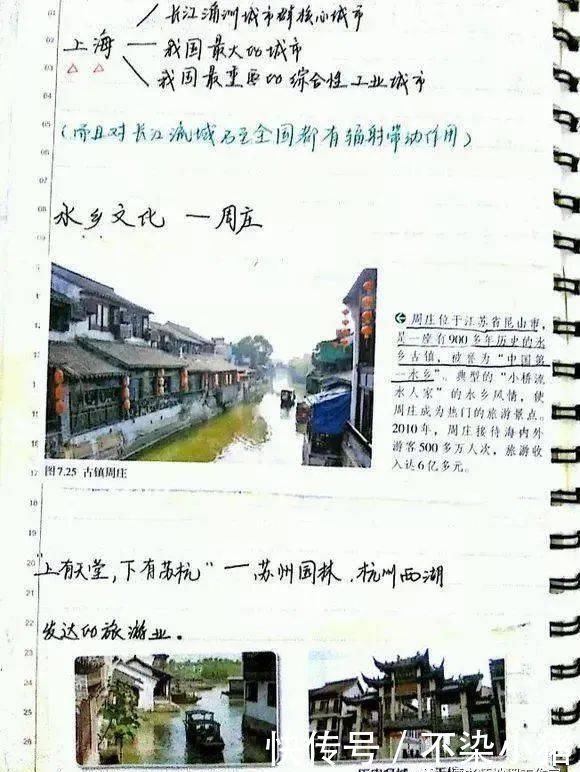 长江三角洲城市群核心城市
上海 — 我国最大的城市
我国最重要的综合性工业城市
(而且对长江流域乃至全国都有辐射带动作用)
水乡文化 — 周庄
周庄位于江苏省昆山市,
是一座有900多年历史的水
乡古镇,被誉为“中国第
一水乡”。典型的“小桥流
水人家”的水乡风情,使
周庄成为热门的旅游景点。
2010年,周庄接待海内外
游客500多万人次,旅游收
入达6亿多元。
图7.25 古镇周庄
“上有天堂,下有苏杭” — 苏州园林、杭州西湖
发达的旅游业。
快传号 / 不染小